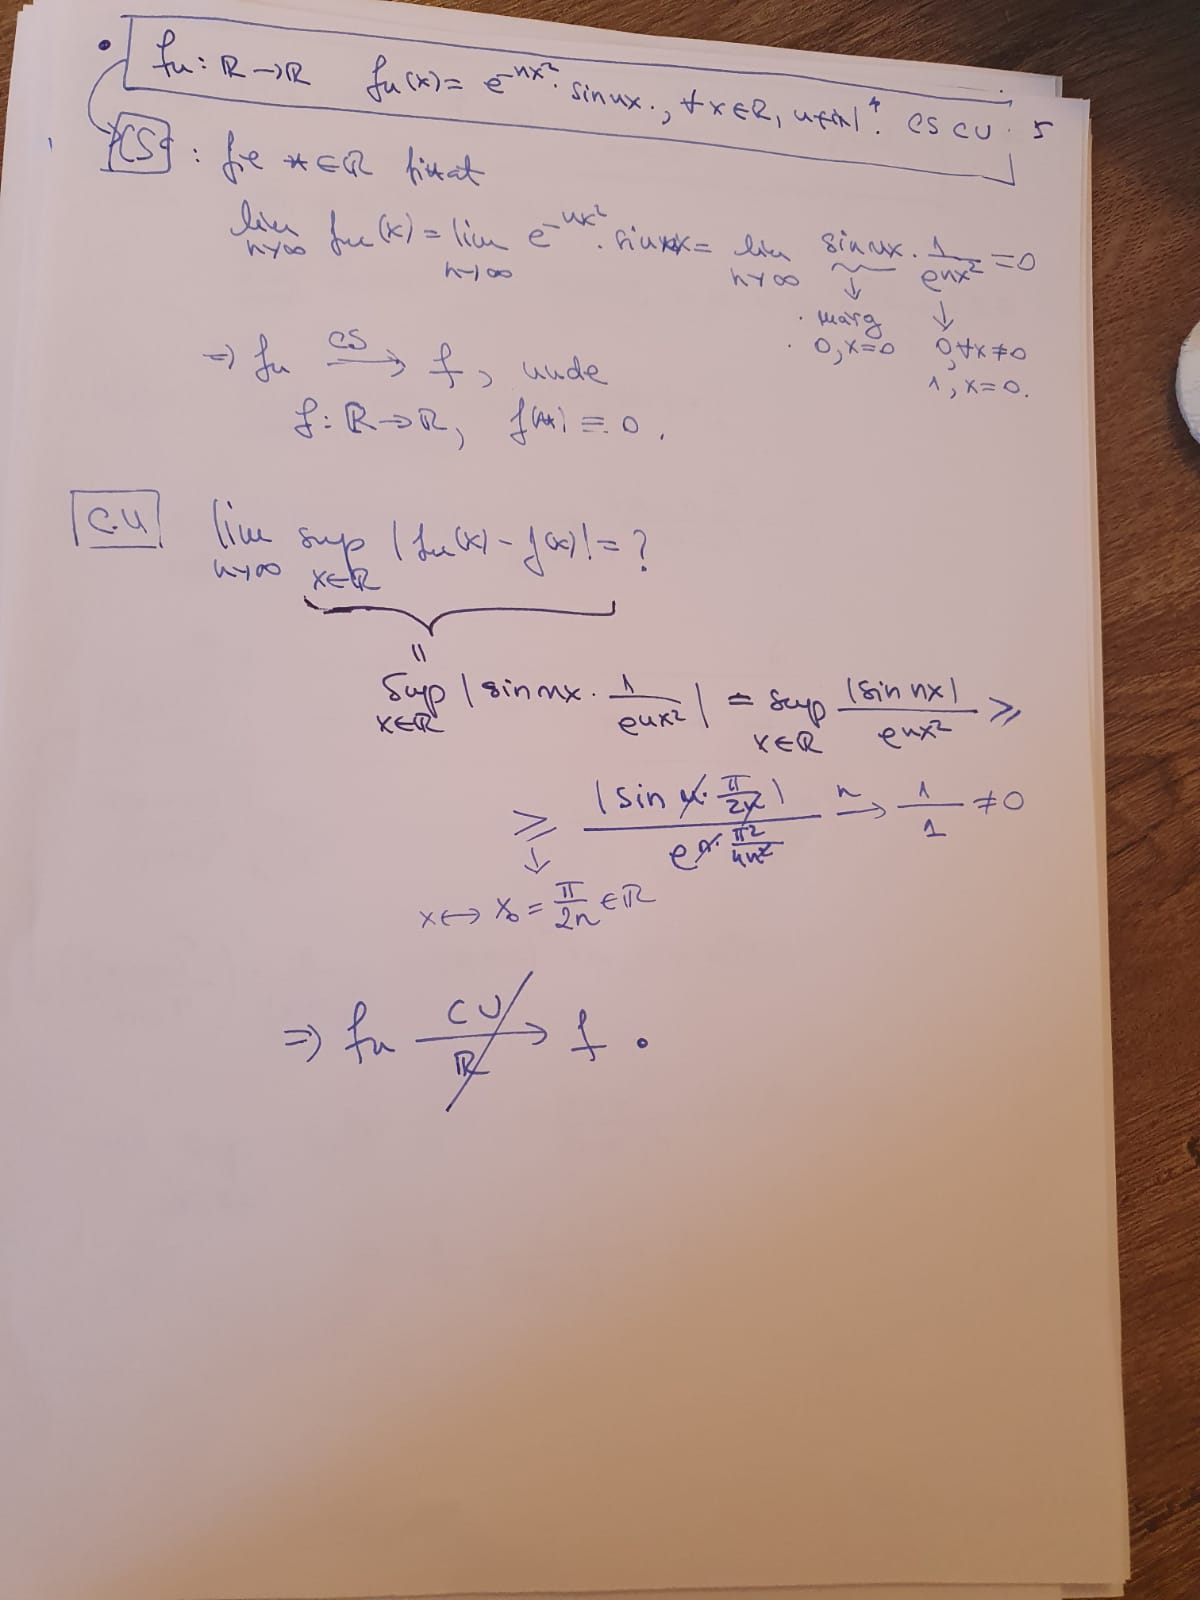 • fn: ℝ→ℝ fn(x) = e^{-nx²}·sin nx., ∀x∈ℝ, n∈ℕ*. CS CU. 5
CS : fie x∈ℝ fixat
lim_{n→∞} fn(x) = lim_{n→∞} e^{-nx²}·sin nx = lim_{n→∞} sin nx · 1/e^{nx²} = 0
↓ ↓
· marg
· 0, x=0 0, ∀x≠0
1, x=0.
⇒ fn —CS→ f, unde
f: ℝ→ℝ, f(x) ≡ 0.
C.U lim_{n→∞} sup_{x∈ℝ} |fn(x) - f(x)| = ?
||
sup_{x∈ℝ} | sin nx · 1/e^{nx²} | = sup_{x∈ℝ} |sin nx|/e^{nx²} ≥
≥ |sin n·π/2n| / e^{n·π²/4n²} —n→ 1/1 ≠ 0
↓
x↔x₀ = π/2n ∈ℝ
⇒ fn —CU/ℝ↛ f .